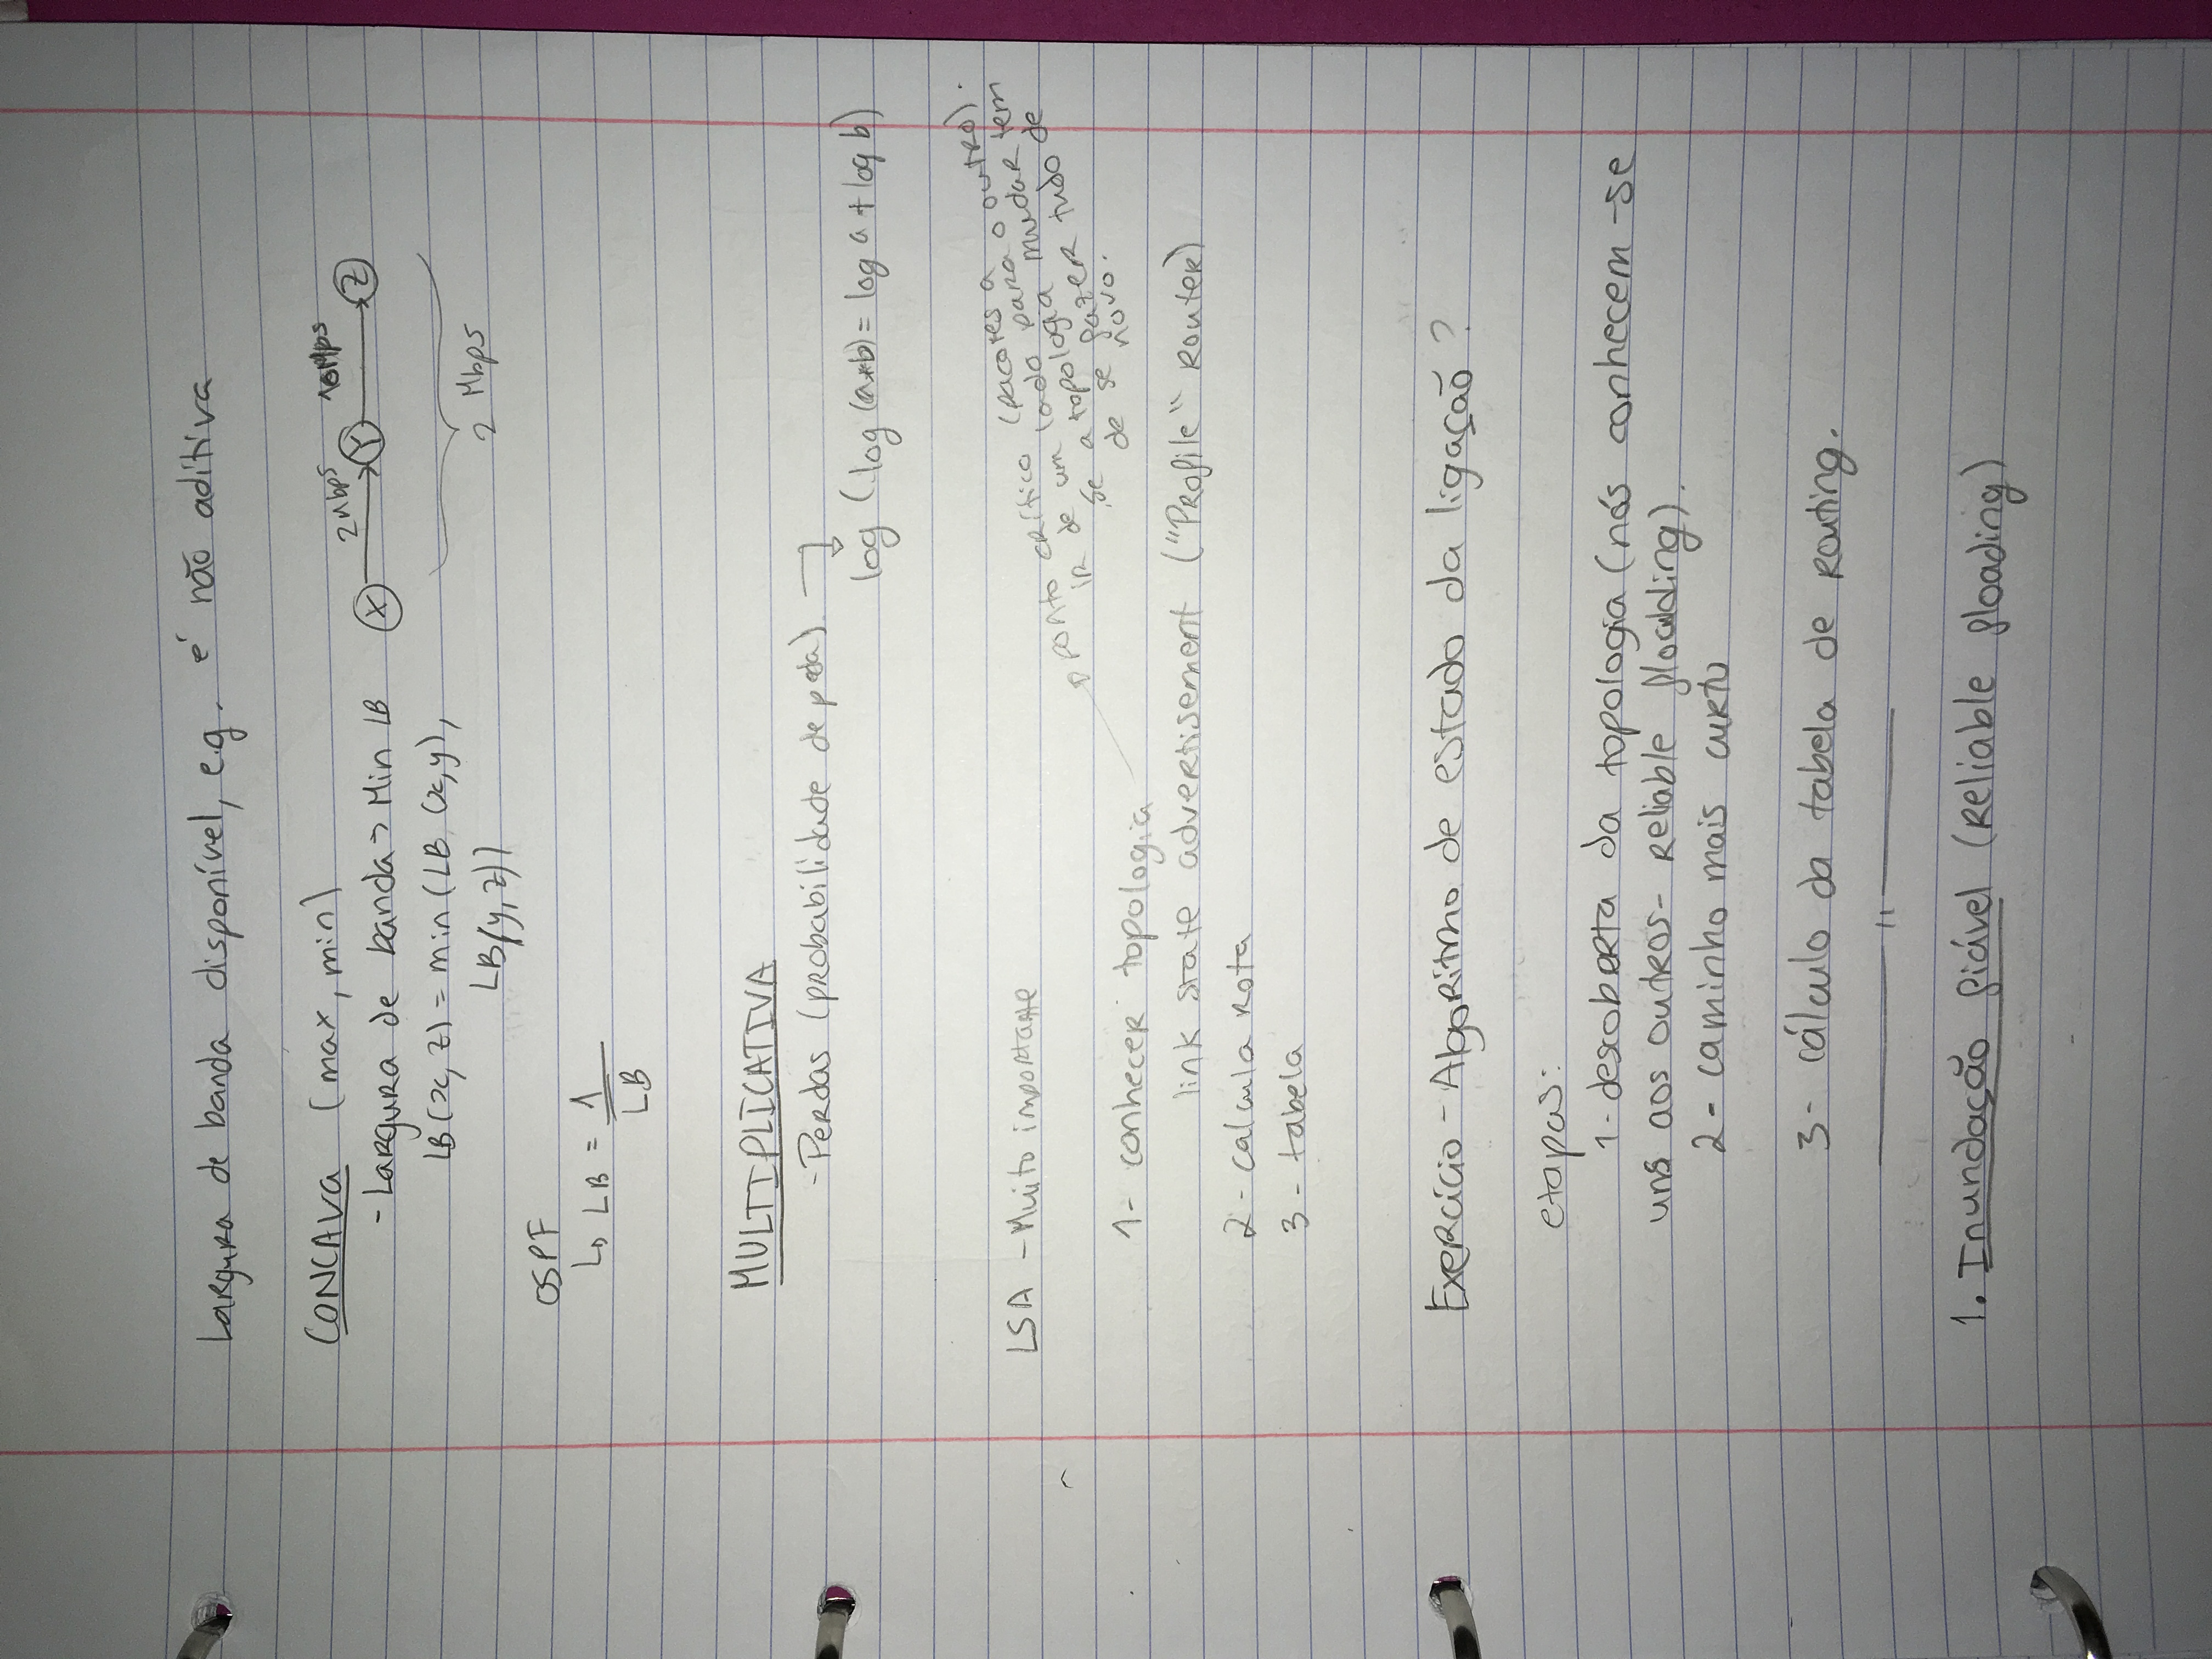 Largura de banda disponível, e.g. é não aditiva
CONCAVA (max, min)
- Largura de banda → Min LB
LB(x, z) = min(LB (x,y),
LB(y, z))
2Mbps 10Mps
X Y Z
2 Mbps
OSPF
↳ LB = 1
LB
MULTIPLICATIVA
- Perdas (probabilidade de peda)
log (log (a*b) = log a + log b)
LSA - Muito importante
ponto crítico (pacotes a
ir de um lado para o outro).
se a topologia mudar tem
de se fazer tudo de
novo.
1- conhecer topologia
link state advertisement ("Profile" Router)
2- calcula rota
3- tabela
Exercício - Algoritmo de estado da ligação?
etapas:
1- descoberta da topologia (nós conhecem-se
uns aos outros- reliable
2- caminho mais curto
3- cálculo da tabela de routing.
11
1. Inundação fiável (Reliable floading)